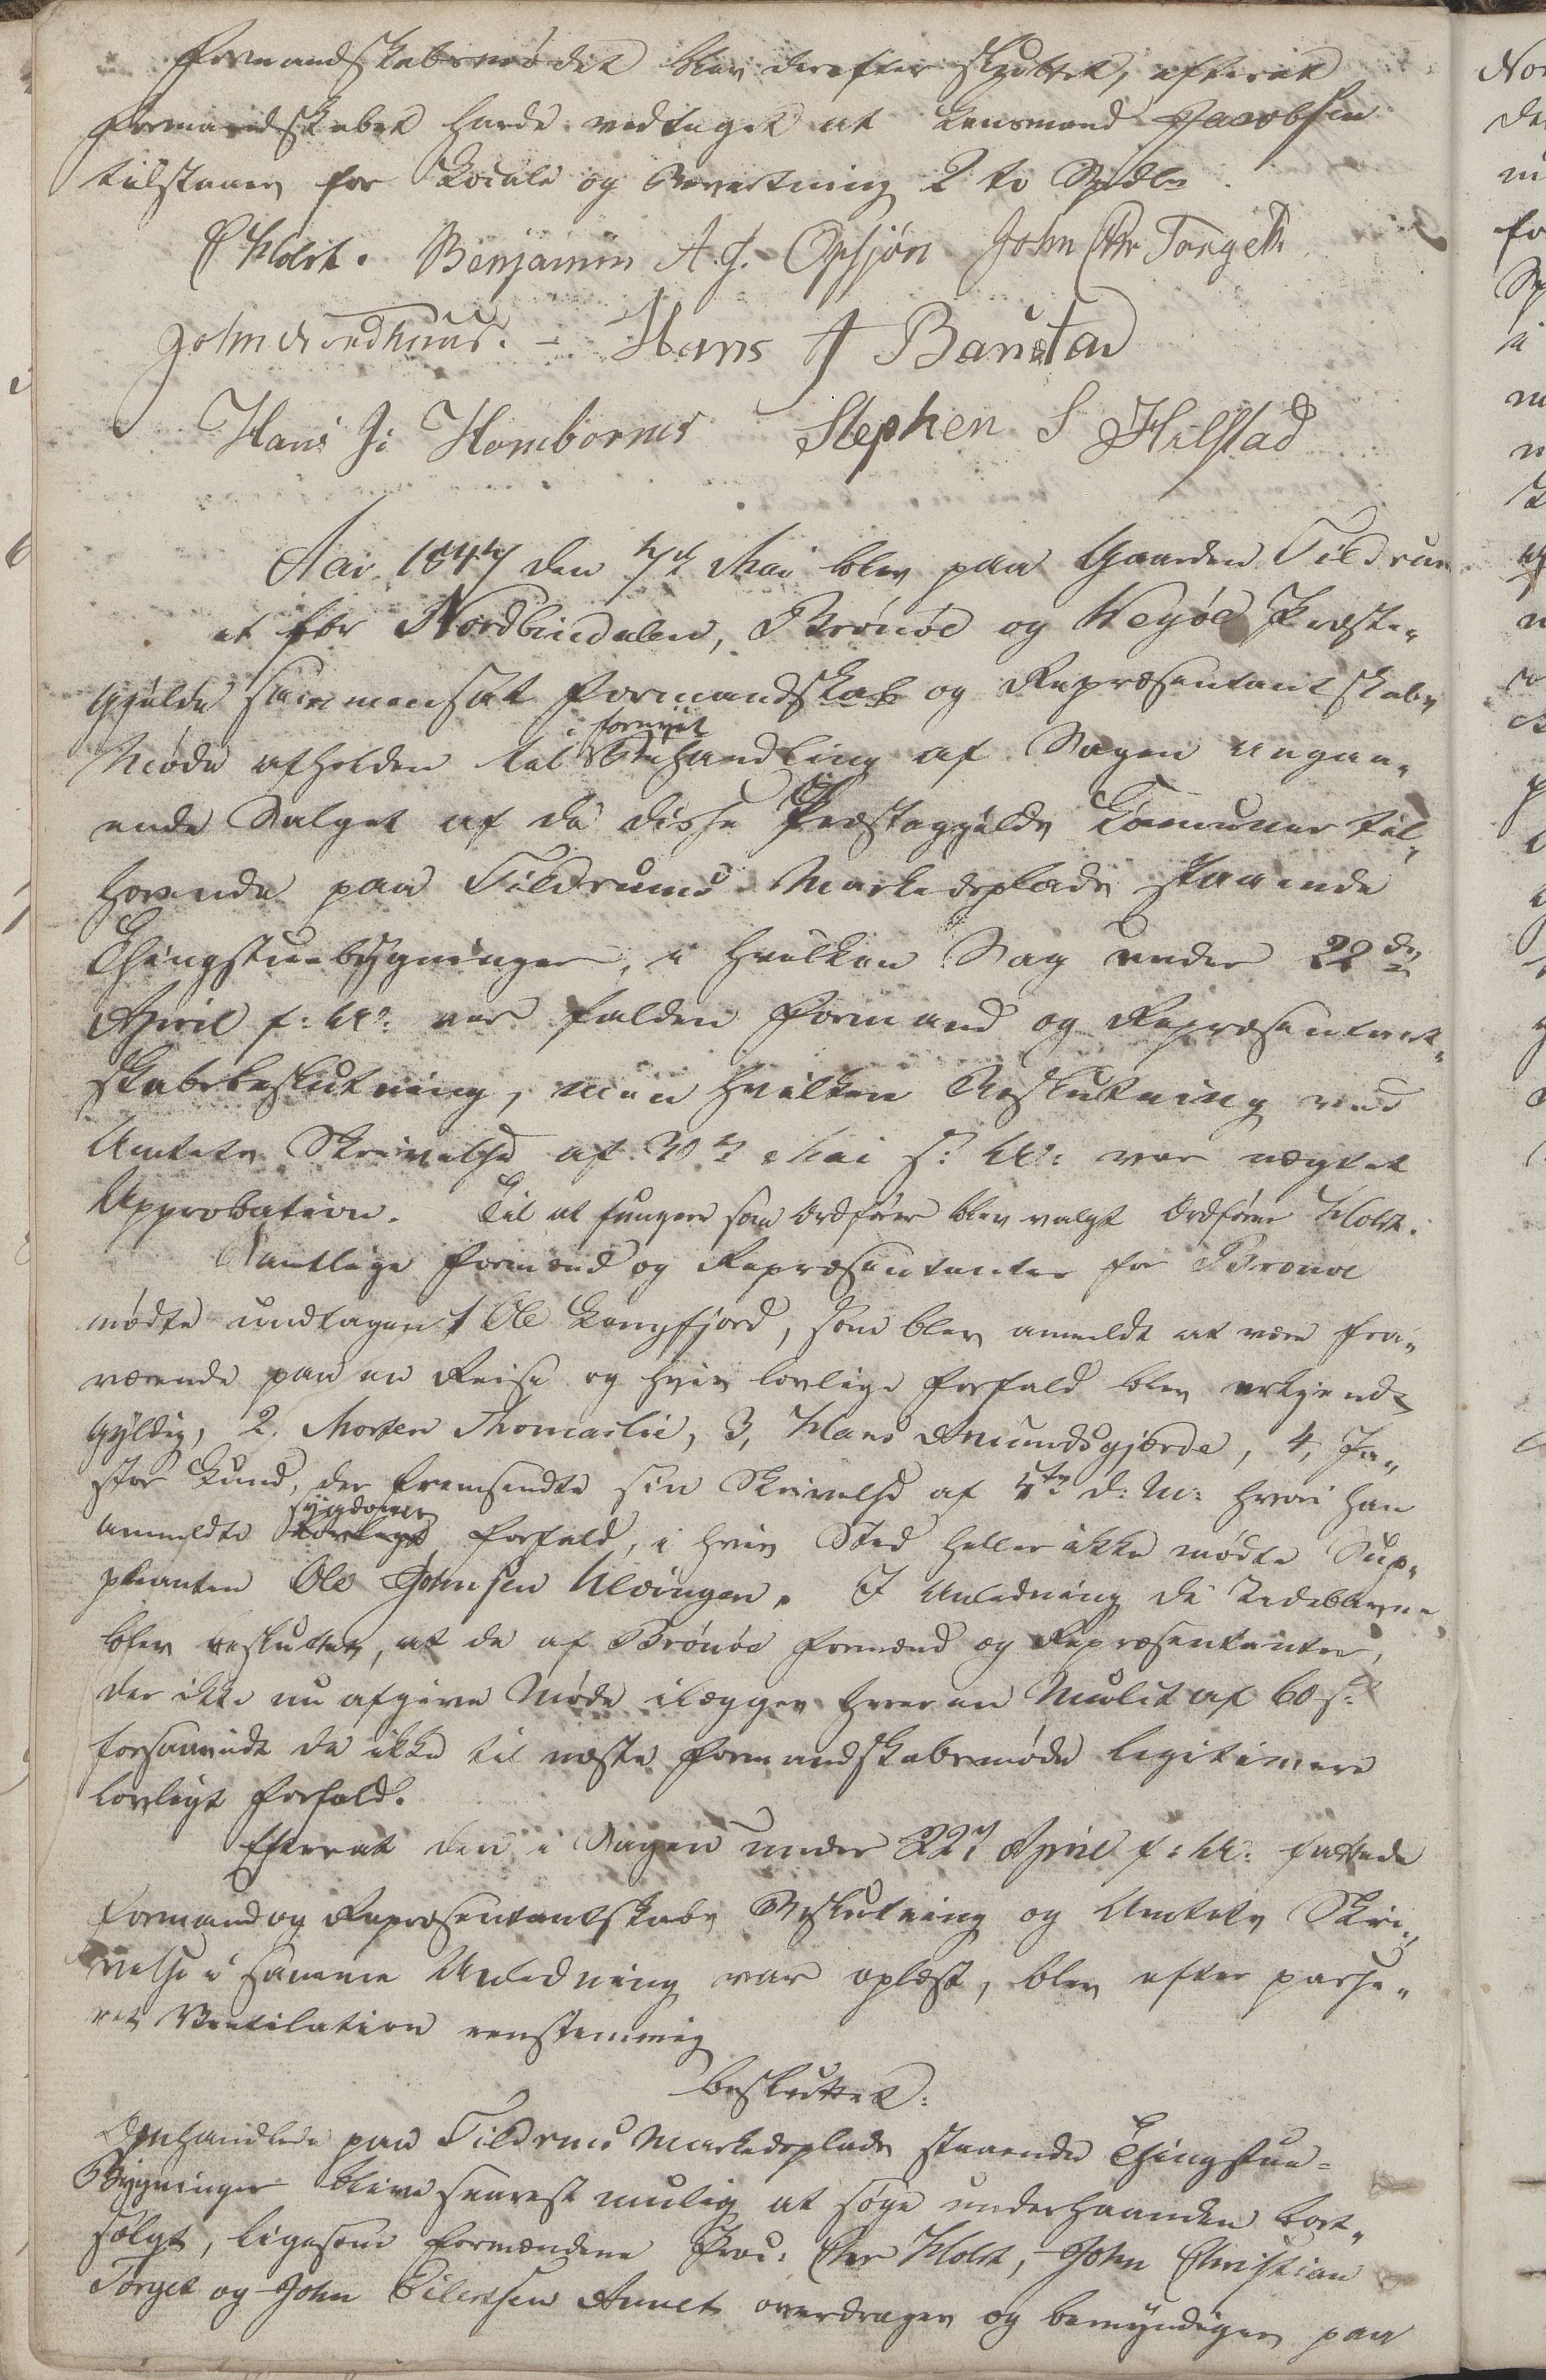 Formandskabsmødet blev derefter sluttet, efterat
Formandskabet havde vedtaget at Lensmand Jacobsen
tilstaaes for Locale og Bevertning 2 to Spdlr
C Holst. Benjamin A. J. Opsjøn John Chr Torgett
John Strandhuus. - Hans J Baustad
Hans Js Hombornes Stephen S Hilstad
Aar 1847 den 7de Mai blev paa Gaarden Tildrum
et for Nordbindalen, Brønøe og Wegøe Præste„
gjelde sammensat Formandskab og Repræsentantskabs
fornyet
Møde afholden til Behandling af Sagen angaa„
ende Salget af de disse Præstegjelds Communer til„
hørende paa Tildrums Markedsplads staaende
Thingstuebygninger, i hvilken Sag under 22de
April f: A: var falden Formand og Repræsentant„
skabsbeslutning, men hvilken Beslutning ved
Amtets Skrivelse af 30te Mai s: A: var nægtet
Approbation. Til at fungere som Ordfører blev valgt Ordfører Holst.
Samtlige Formænd og Repræsentanter for Brønøe
mødte undtagen 1 Ole Langfjord, som blev anmeldt at være fra„
værende paa en Reise og hvis lovlige Forfald blev erkjendt
gyldig, 2. Morten Thomaslie, 3, Hans Amundsgjerde, 4, Ja„
Lund, der fremsendte sin Skrivelse af 5te d: M: hvori han
sygdoms
anmeldte lovligt Forfald, i hvis Sted heller ikke mødte Sup„
pleanten Ole Johnsen Ulvingen. I Anledning de Udeblevne
blev besluttet, at de af Brønøe Formænd og Repræsentanter,
der ikke nu afgive Møde ilægges hver en Mulct af 60 s:
forsaavidt de ikke til næste Formandskabsmøde legitimere
lovligt Forfald.
Efterat den i Sagen under 22de April f: A: fattede
Formand og Repræsentantskabs Beslutning og Amtets Skri„
velse i samme Anledning var oplæst, blev efter passe„
ret Ventilation eenstemmig
besluttet:
Omhandlede paa Tildrums Markedsplads staaende Thingstue=
Bygninger blive snarest mulig at søge underhaanden bort„
solgt, ligesom Formændene Chr Holst, John Christian
Torget og John Eilertsen overdrages og bemyndiges paa